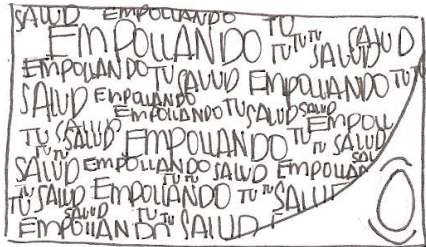 SALUD EMPOLLANDO TU
EMPOLLANDO TU TU TU SALUD SALUD
EMPOLLANDO TU SALUD EMPOLLANDO TU TU
SALUD EMPOLLANDO
EMPOLLANDO TU SALUD SALUD
TU SALUD SALUD EMPOLLANDO TU EMPOLL
TU TU TU SALUD
SALUD EMPOLLANDO SALUD EMPOLLAN SAL
TU SALUD EMPOLLANDO TU TU TU TU SALUD
SALUD
EMPOLLANDO TU TU TU SALUD E